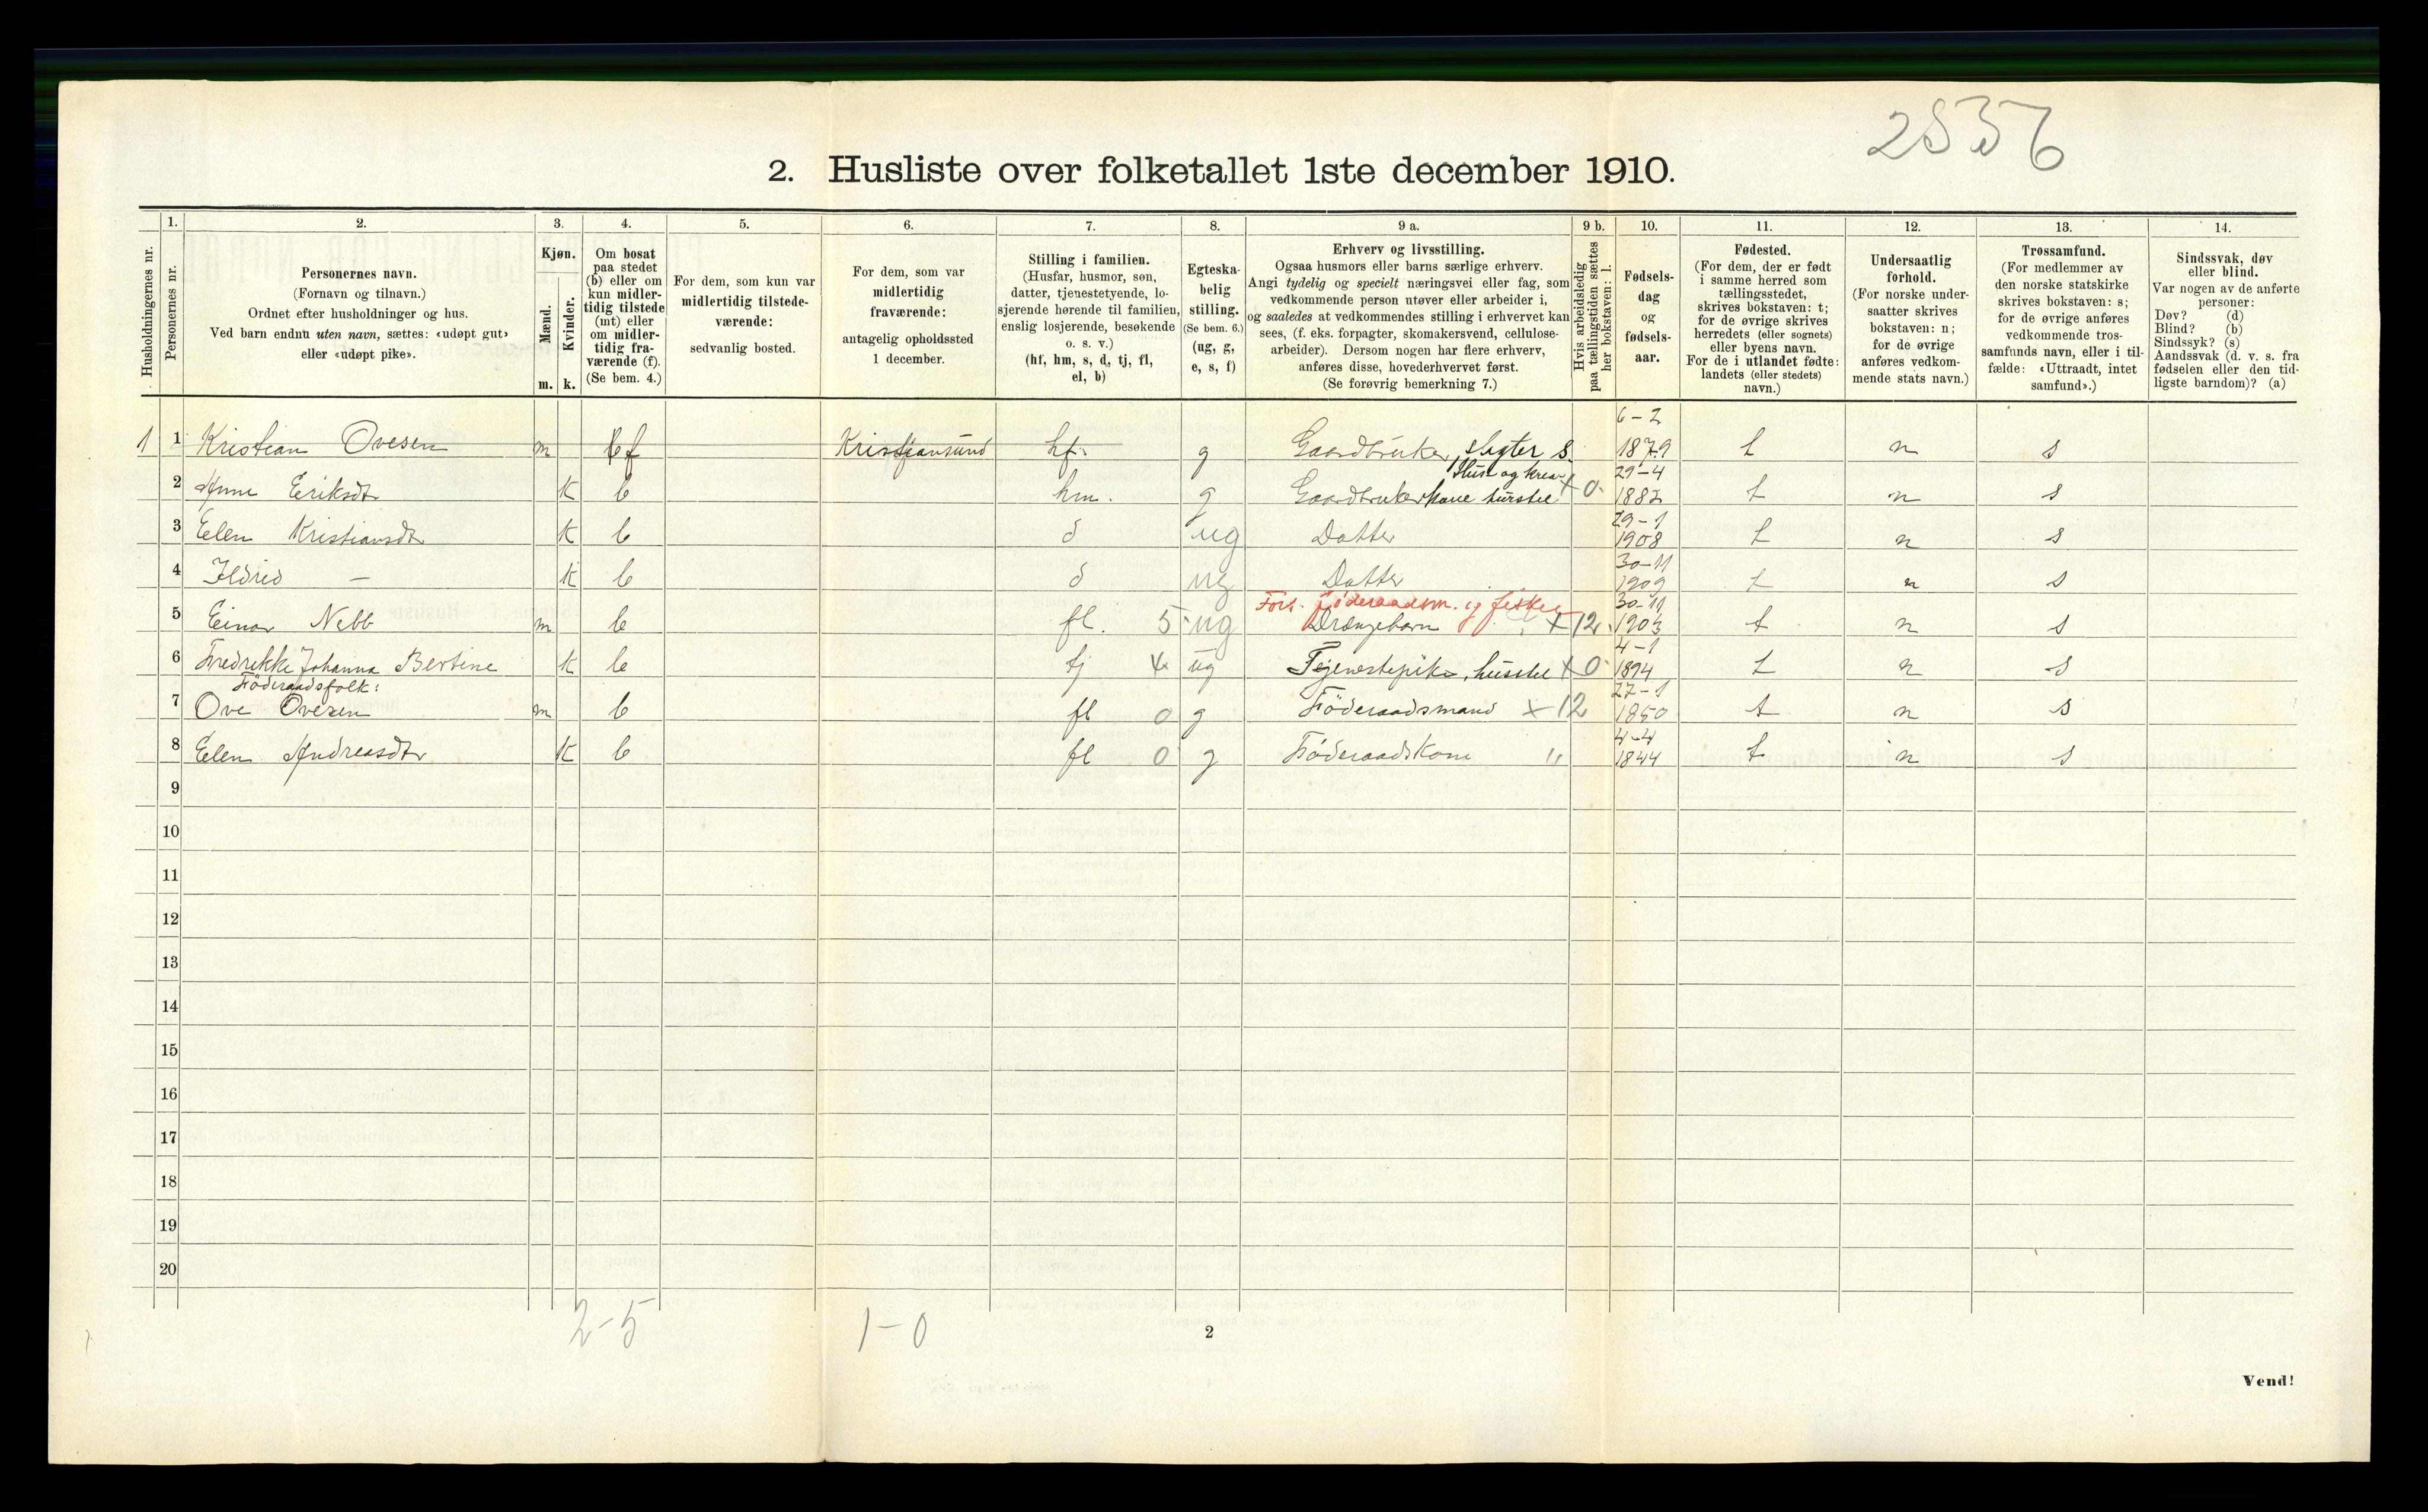 2536
2. Husliste over folketallet 1ste december 1910.
Husholdningernes nr.
1.
Personernes nr.
2.
Personernes navn.
(Fornavn og tilnavn.)
Ordnet efter husholdninger og hus.
Ved barn endnu uten navn, sættes: «udøpt gut»
eller «udøpt pike».
3.
Kjøn.
Mænd.
Kvinder.
m. k.
4.
Om bosat
paa stedet
(b) eller om
kun midler-
tidig tilstede
(mt) eller
om midler-
tidig fra-
værende (f).
(Se bem. 4.)
5.
For dem, som kun var
midlertidig tilstede-
værende:
sedvanlig bosted.
6.
For dem, som var
midlertidig
fraværende:
antagelig opholdssted
1 december.
7.
Stilling i familien.
(Husfar, husmor, søn,
datter, tjenestetyende, lo-
sjerende hørende til familien,
enslig losjerende, besøkende
o. s. v.)
(hf, hm, s, d, tj, fl,
el, b)
8.
Egteska-
belig
stilling.
(Se bem. 6.)
(ug, g,
e, s, f)
9 a.
Erhverv og livsstilling.
Ogsaa husmors eller barns særlige erhverv.
Angi tydelig og specielt næringsvei eller fag, som
vedkommende person utøver eller arbeider i,
og saaledes at vedkommendes stilling i erhvervet kan
sees, (f. eks. forpagter, skomakersvend, cellulose-
arbeider). Dersom nogen har flere erhverv,
anføres disse, hovederhvervet først.
(Se forøvrig bemerkning 7.)
9 b.
Hvis arbeidsledig
paa tællingstiden sættes
her bokstaven: l.
10.
Fødsels-
dag
og
fødsels-
aar.
11.
Fødested.
(For dem, der er født
i samme herred som
tællingsstedet,
skrives bokstaven: t;
for de øvrige skrives
herredets (eller sognets)
eller byens navn.
For de i utlandet fødte:
landets (eller stedets)
navn.)
12.
Undersaatlig
forhold.
(For norske under-
saatter skrives
bokstaven: n;
for de øvrige
anføres vedkom-
mende stats navn.)
13.
Trossamfund.
(For medlemmer av
den norske statskirke
skrives bokstaven: s;
for de øvrige anføres
vedkommende tros-
samfunds navn, eller i til-
fælde: «Uttraadt, intet
samfund».)
14.
Sindssvak, døv
eller blind.
Var nogen av de anførte
personer:
Døv? (d)
Blind? (b)
Sindssyk? (s)
Aandssvak (d. v. s. fra
fødselen eller den tid-
ligste barndom)? (a)
1 1 Kristian Ovesen m f Kristjansund hf. g Gaardbruker, slagter s. 6-2 1879 t n s
2 Anne Eriksdtr k b hm. g Gaardbrukerkone husstel Hus og krea- x 0 29-4 1882 t n s
3 Elen Kristiansdtr k b d ug Datter 29-1 1908 t n s
4 Ildrid — k b d ug Datter 30-11 1909 t n s
Fors. føderaadsm. og fisker
5 Einar Nebb m b fl. 5 ug x 12 30-11 1903 t n s
6 Fredrekke Johanna Bertine k b tj ug Tejenestepike, husstel x 0 4-1 1894 t n s
Föderaadsfolk:
7 Ove Ovesen m b fl 0 g Föderaadsmand x 12 27-1 1850 t n s
8 Elen Andreasdtr k b fl 0 g Föderaadskone " 4-4 1844 t n s
9
10
11
12
13
14
15
16
17
18
19
20
2-5 1-0
2
Vend!